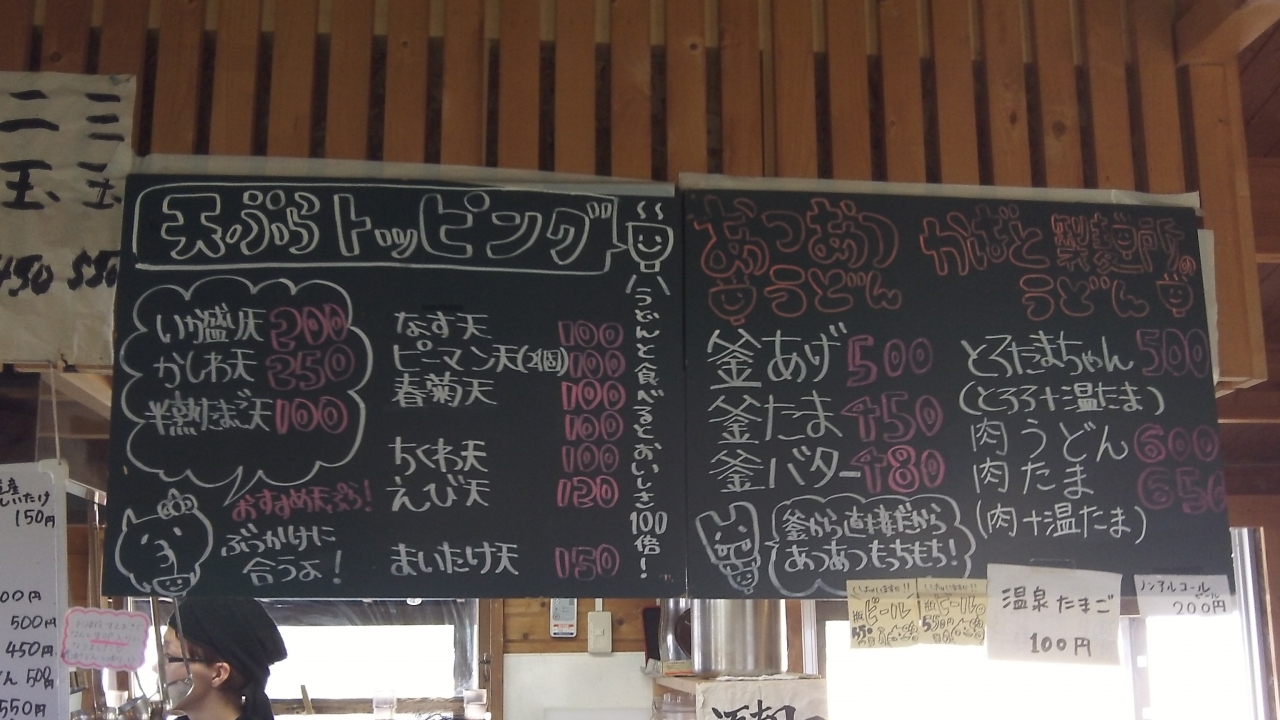 二 三
玉 玉
450 550
天ぷらトッピング
いか盛り天 200
かしわ天 350
半熟たまご天 100
おすすめ天ぷら!
ぶっかけに
合うよ!
なす天 100
ピーマン天(2個) 100
春菊天 100
100
ちくわ天 100
えび天 120
まいたけ天 150
うどんと食べるとおいしさ100倍!
あつあつ
うどん
釜あげ 500
釜たま 450
釜バター 480
釜から直接だから
あつあつもちもち!
かばと製麺所の
うどん
とろたまちゃん 500
(とろろ+温たま)
肉うどん 600
肉たま 650
(肉+温たま)
しいたけ
150円
00円
500円
450円
500円
550円
ビール
550
ビール
550
温泉たまご
100円
ノンアルコール
200円